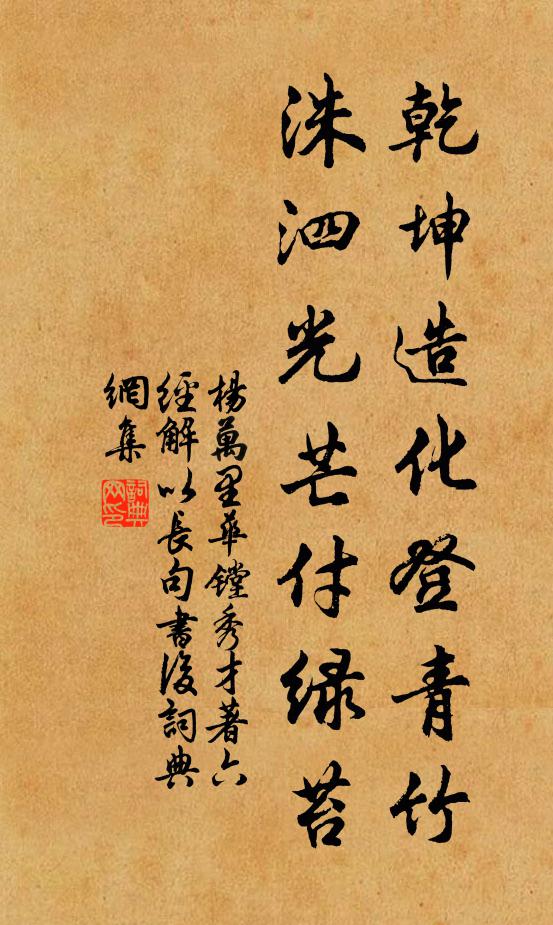 乾坤造化登青竹
洙泗光芒付绿苔
楊萬里華鏜秀才著六
經解以長句書後詞典
網集
詞典
网印